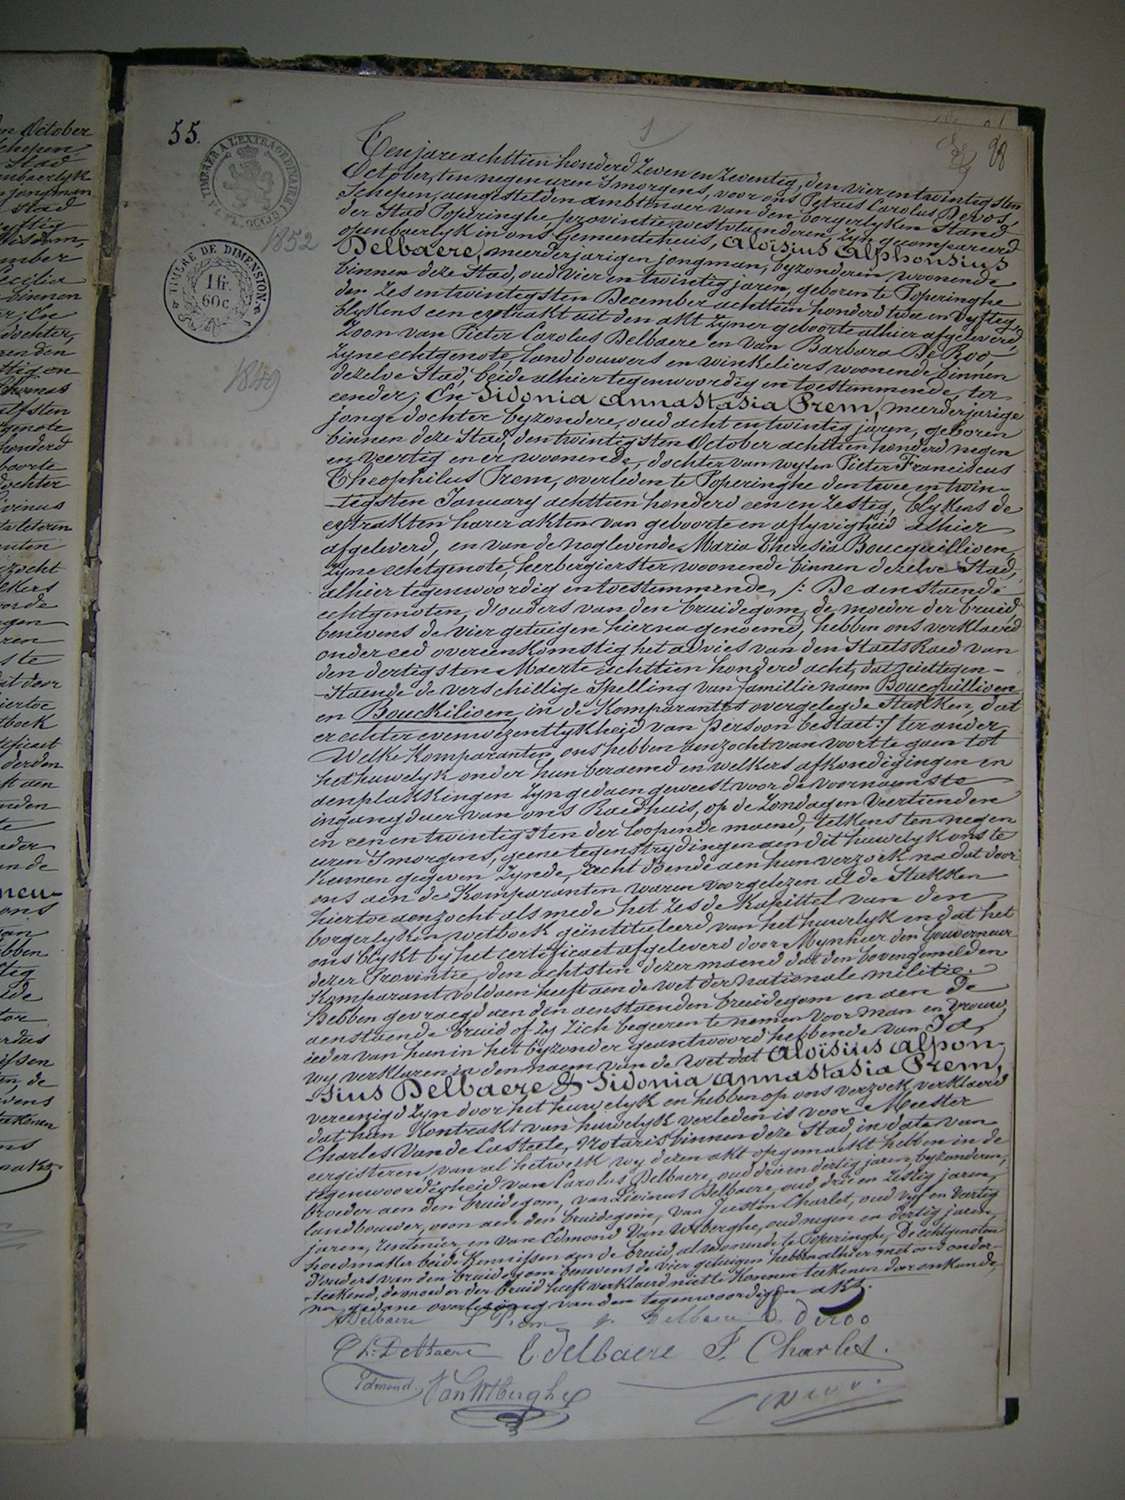 55.
1
98
A TIMBRER A L'EXTRAORDINAIRE
TIMBRE DE DIMENSION
1 fr.
60 c.
1852
1849
Ten jare achttien honderd zeven en zeventig, den vier en twintigsten
October, ten negen uren s'morgens, voor ons Petrus Carolus Devos,
Schepen, aengestelden ambtenaer van den borgerlyken Stand
der Stad Poperinghe, provintie westvlaenderen, zyn gecompareerd
openbaerlyk in ons Gemeentehuis, Aloïsius Alphonsius
Delbaere, meerderjarigen jongman, byzonderen, woonende
binnen deze Stad, oud vier en twintig jaren, geboren te Poperinghe
den zes en twintigsten December achttien honderd twee en vyftig,
blykens een extrakt uit den akt zyner geboorte alhier afgeleverd,
Zoon van Pieter Carolus Delbaere en van Barbara De Roo,
zyne echtgenote, landbouwers en winkeliers woonende binnen
dezelve Stad, beide alhier tegenwoordig en toestemmende, ter
eender; En Sidonia Annastasia Prem, meerderjarige
jonge dochter byzondere, oud acht en twintig jaren, geboren
binnen deze Stad, den twintigsten October achttien honderd negen
en veertig en er woonende, dochter van wylen Pieter Franciscus
Theophilus Prem, overleden te Poperinghe den twee en twin-
-tigsten January achttien honderd een en zestig, blykens de
extrakten harer akten van geboorte en aflyvigheid alhier
afgeleverd, en van de noglevende Maria Theresia Boucquillioen,
zyne echtgenote, herbergierster, woonende binnen dezelve Stad,
alhier tegenwoordig en toestemmende, /: De aenstaende
echtgenoten, d'ouders van den bruidegom, de moeder der bruid
benevens de vier getuigen hierna genoemd, hebben ons verklaerd
onder eed overeenkomstig het advies van den Staets Raed van
den dertigsten Maerte achttien honderd acht, dat niettegen-
-staende de verschillige Spelling van famillie naem Boucquillioen
en Bouckilioen, in de Komparantes overgelegde Stukken, dat
er echter evenwezentlykheid van persoon bestaet :/ ter andere
Welke Komparanten ons hebben aenzocht van voort te gaen tot
het huwelyk onder hun beraemd en welkers afkondigingen en
aenplakkingen zyn gedaen geweest voor de voornaemste
ingang duer van ons Raedhuis, op de Zondagen veertienden
en een en twintigsten der loopende maend, telkens ten negen
uren s'morgens, geene tegenstrydingen aen dit huwelyk ons te
kennen gegeven zynde, recht doende aen hun verzoek na dat door
ons aen de Komparanten waren voorgelezen al de Stukken
hiertoe aenzocht alsmede het zesde Kapittel van den
borgerlyken wetboek geïntituleerd van het huwelyk en dat het
ons blykt by het certificaet afgeleverd door Mynheer den Gouverneur
dezer Provintie, den achtsten dezer maend dat den bovengemelden
Komparant voldaen heeft aen de wet der nationale militie.
Hebben gevraegd aen den aenstaenden bruidegom en aen de
aenstaende bruid of zy zich begeeren te nemen voor man en vrouw,
ieder van hun in het byzonder geantwoord hebbende van Ja,
wy verklaren in den naem van de Wet dat Aloïsius Alphon-
sius Delbaere & Sidonia Annastasia Prem,
vereenigd zyn door het huwelyk en hebben op ons verzoek verklaerd
dat hun Kontrakt van huwelyk verleden is voor Meester
Charles Van de Casteele, Notaris binnen deze Stad, in date van
eergisteren, van al hetwelk wy dezen akt opgemaekt hebben in de
tegenwoordigheid van Carolus Delbaere, oud drie en dertig jaren, byzonderen,
broeder aen den bruidegom, van Livinus Delbaere, oud drie en zestig jaren,
landbouwer, oom aen den bruidegom, van Justin Charlet, oud vyf en vartig
jaren, rentenier, en van Edmond Van Wtberghe, oud negen en dertig jaren,
hoedmaker beide kennissen aen de bruid, al woonende te Poperinghe, De echtgenoten
d'ouders van den bruidegom benevens de vier getuigen hebben alhier met ons onder-
-teekend, de moeder der bruid heeft verklaerd niet te konnen teekenen daer onkunde,
na gedane overlezing van den tegenwoordigen akt.
A Delbaere S Prem p. Delbaere B deroo
Ch: Delbaere L Delbaere J. Charlet.
Edmond VanWtberghe